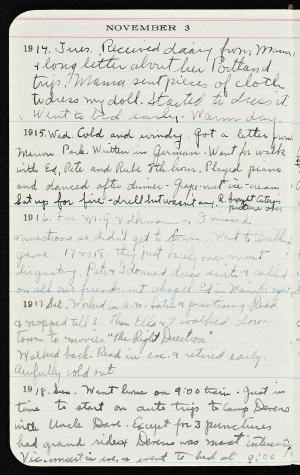 NOVEMBER 3
1914. Tues. Received diary from Mama,
& long letter about her Portland
trip. Mama sent pieces of cloth
to dress my doll. Started to dress it.
Went to bed early. Warm day.
1915. Wed. Cold and windy. Got a letter from
Marion Park. Written in German. Went for walk
with Ed, Pete and Rube 8th hour. Played piano
and danced after dinner. Grape-nut ice-cream
Set up for fire-drill but wasn't any.
1916. Fri. M-G I
connections so didn't get to
game. 17 to 18. They just barely won. most
disgusting. Pete & I donned dress suits & called
on all our friends.
1917. Sat. Worked in a.m. Latin & practising. Read
& mopped till 3. Then Ella & I walked down
town to movies "The Right Direction"
Walked back. Read in eve. & retired early.
Awfully cold out.
1918. Sun. Went home on 9:00 train. Just in
time to start on auto trip to Camp Devens
with Uncle Dave. Except for 3 punctures
had grand ride & Devens was most interesting
Vic. concert in eve. & went to bed at 9:00